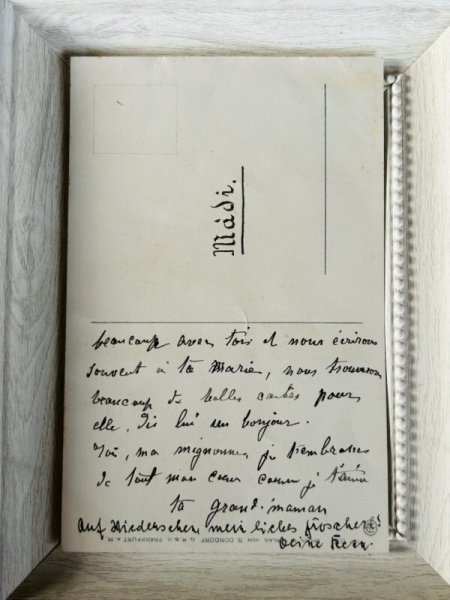 Mädi.
beaucoup avec toi et nous écrirons
souvent à ta Marie, nous trouverons
beaucoup de belles cartes pour
elle, dis lui un bonjour.
Toi, ma mignonne, je t'embrasse
de tout mon cœur je t'aime
ta grand-maman
Auf Wiedersehen mein liebes
Deine
VERLAG VON S. CONDORF G.M.B.H. FRANKFURT A. M.